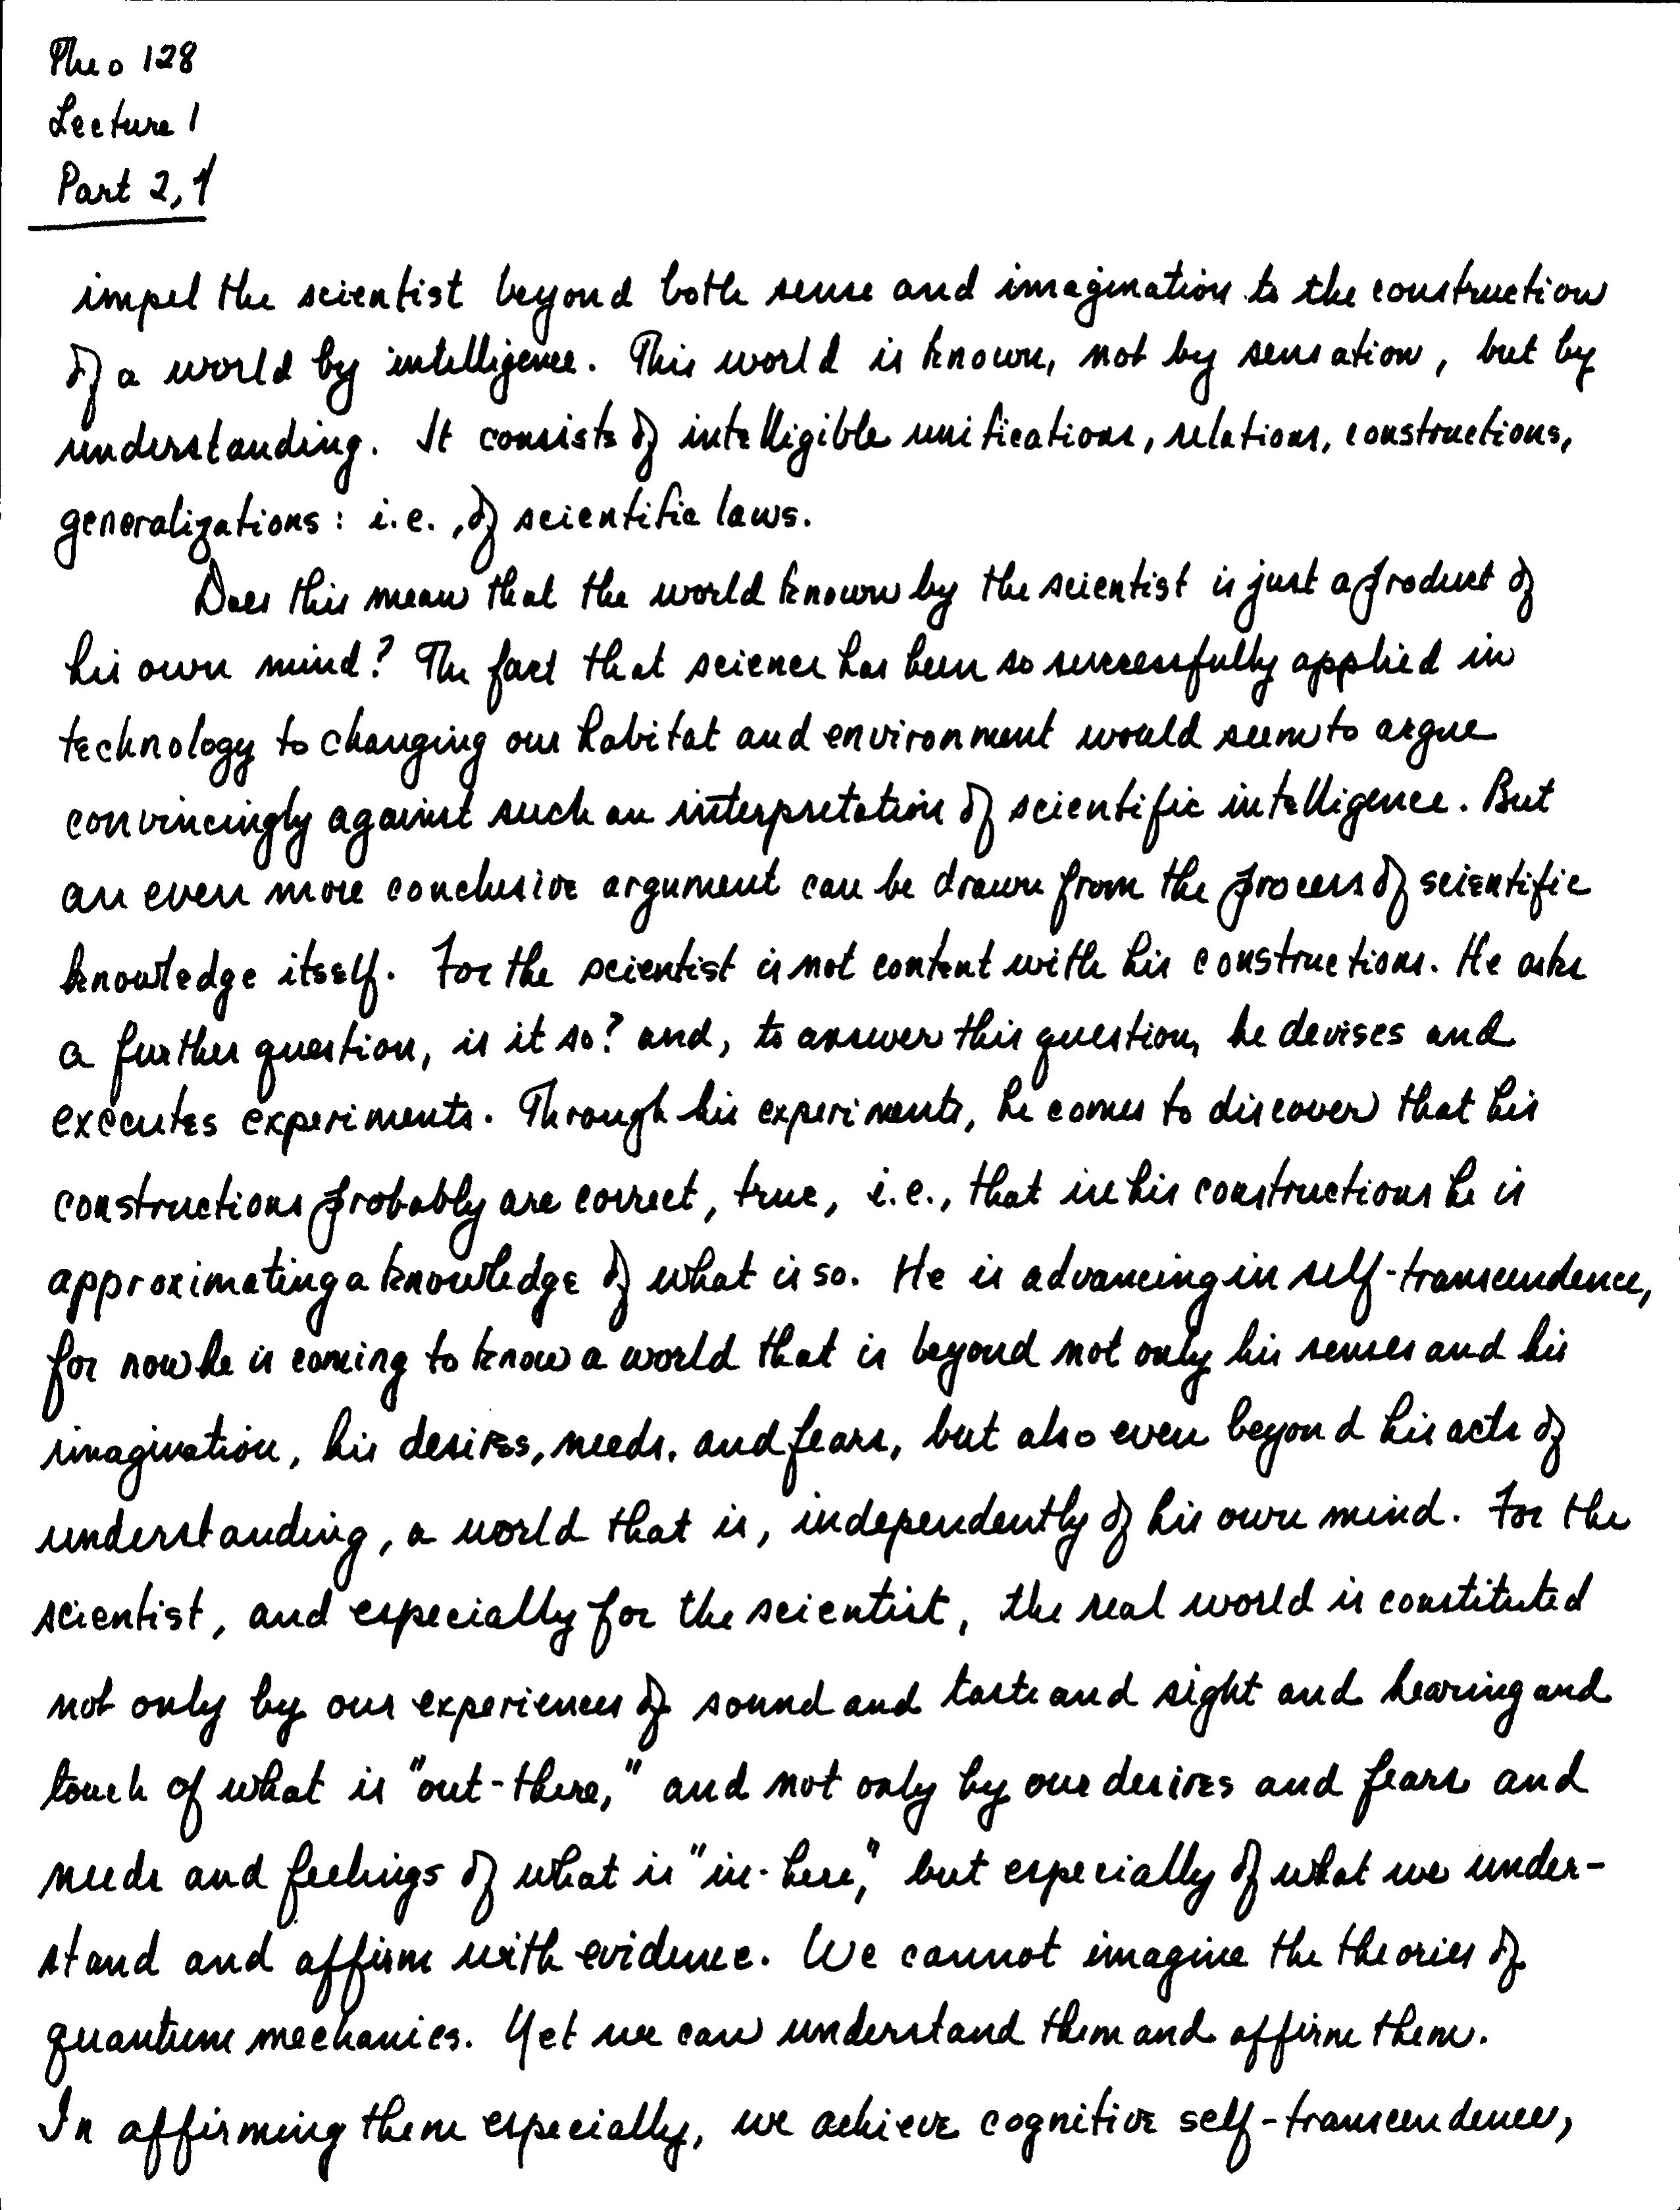 Theo 128
Lecture 1
Part 2, 1
impel the scientist beyond both sense and imagination to the construction
of a world by intelligence. This world is known, not by sensation, but by
understanding. It consists of intelligible unifications, relations, constructions,
generalizations: i.e., of scientific laws.
Does this mean that the world known by the scientist is just a product of
his own mind? The fact that science has been so successfully applied in
technology to changing our habitat and environment would seem to argue
convincingly against such an interpretation of scientific intelligence. But
an even more conclusive argument can be drawn from the process of scientific
knowledge itself. For the scientist is not content with his constructions. He asks
a further question, is it so? and, to answer this question, he devises and
executes experiments. Through his experiments, he comes to discover that his
constructions probably are correct, true, i.e., that in his constructions he is
approximating a knowledge of what is so. He is advancing in self-transcendence,
for now he is coming to know a world that is beyond not only his senses and his
imagination, his desires, needs, and fears, but also even beyond his acts of
understanding, a world that is, independently of his own mind. For the
scientist, and especially for the scientist, the real world is constituted
not only by our experiences of sound and taste and sight and hearing and
touch of what is "out-there," and not only by our desires and fears and
needs and feelings of what is "in-here," but especially of what we under-
stand and affirm with evidence. We cannot imagine the theories of
quantum mechanics. Yet we can understand them and affirm them.
In affirming them especially, we achieve cognitive self-transcendence,